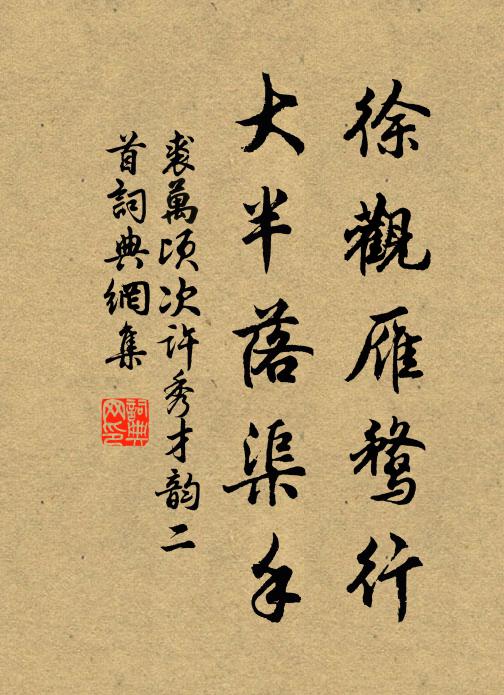 徐觀雁鶩行
大半落渠手
裘萬頃次許秀才韵二
首詞典網集
詞典
网印